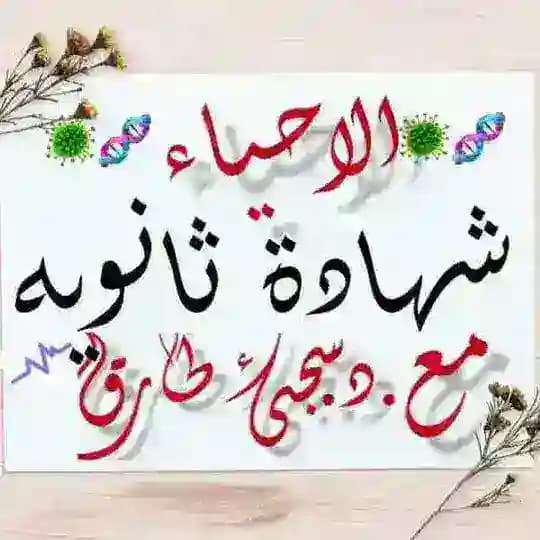 الاحياء
شهادة ثانويه
مع د. طارق